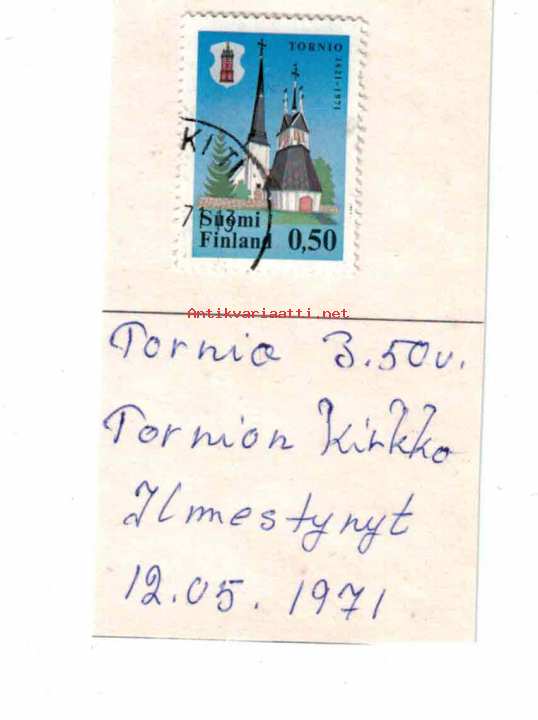 TORNIO
1621-1971
KITI
71 13
Suomi
Finland 0,50
Antikvariaatti.net
Tornio 3.50v.
Tornion Kirkko
Ilmestynyt
12.05. 1971